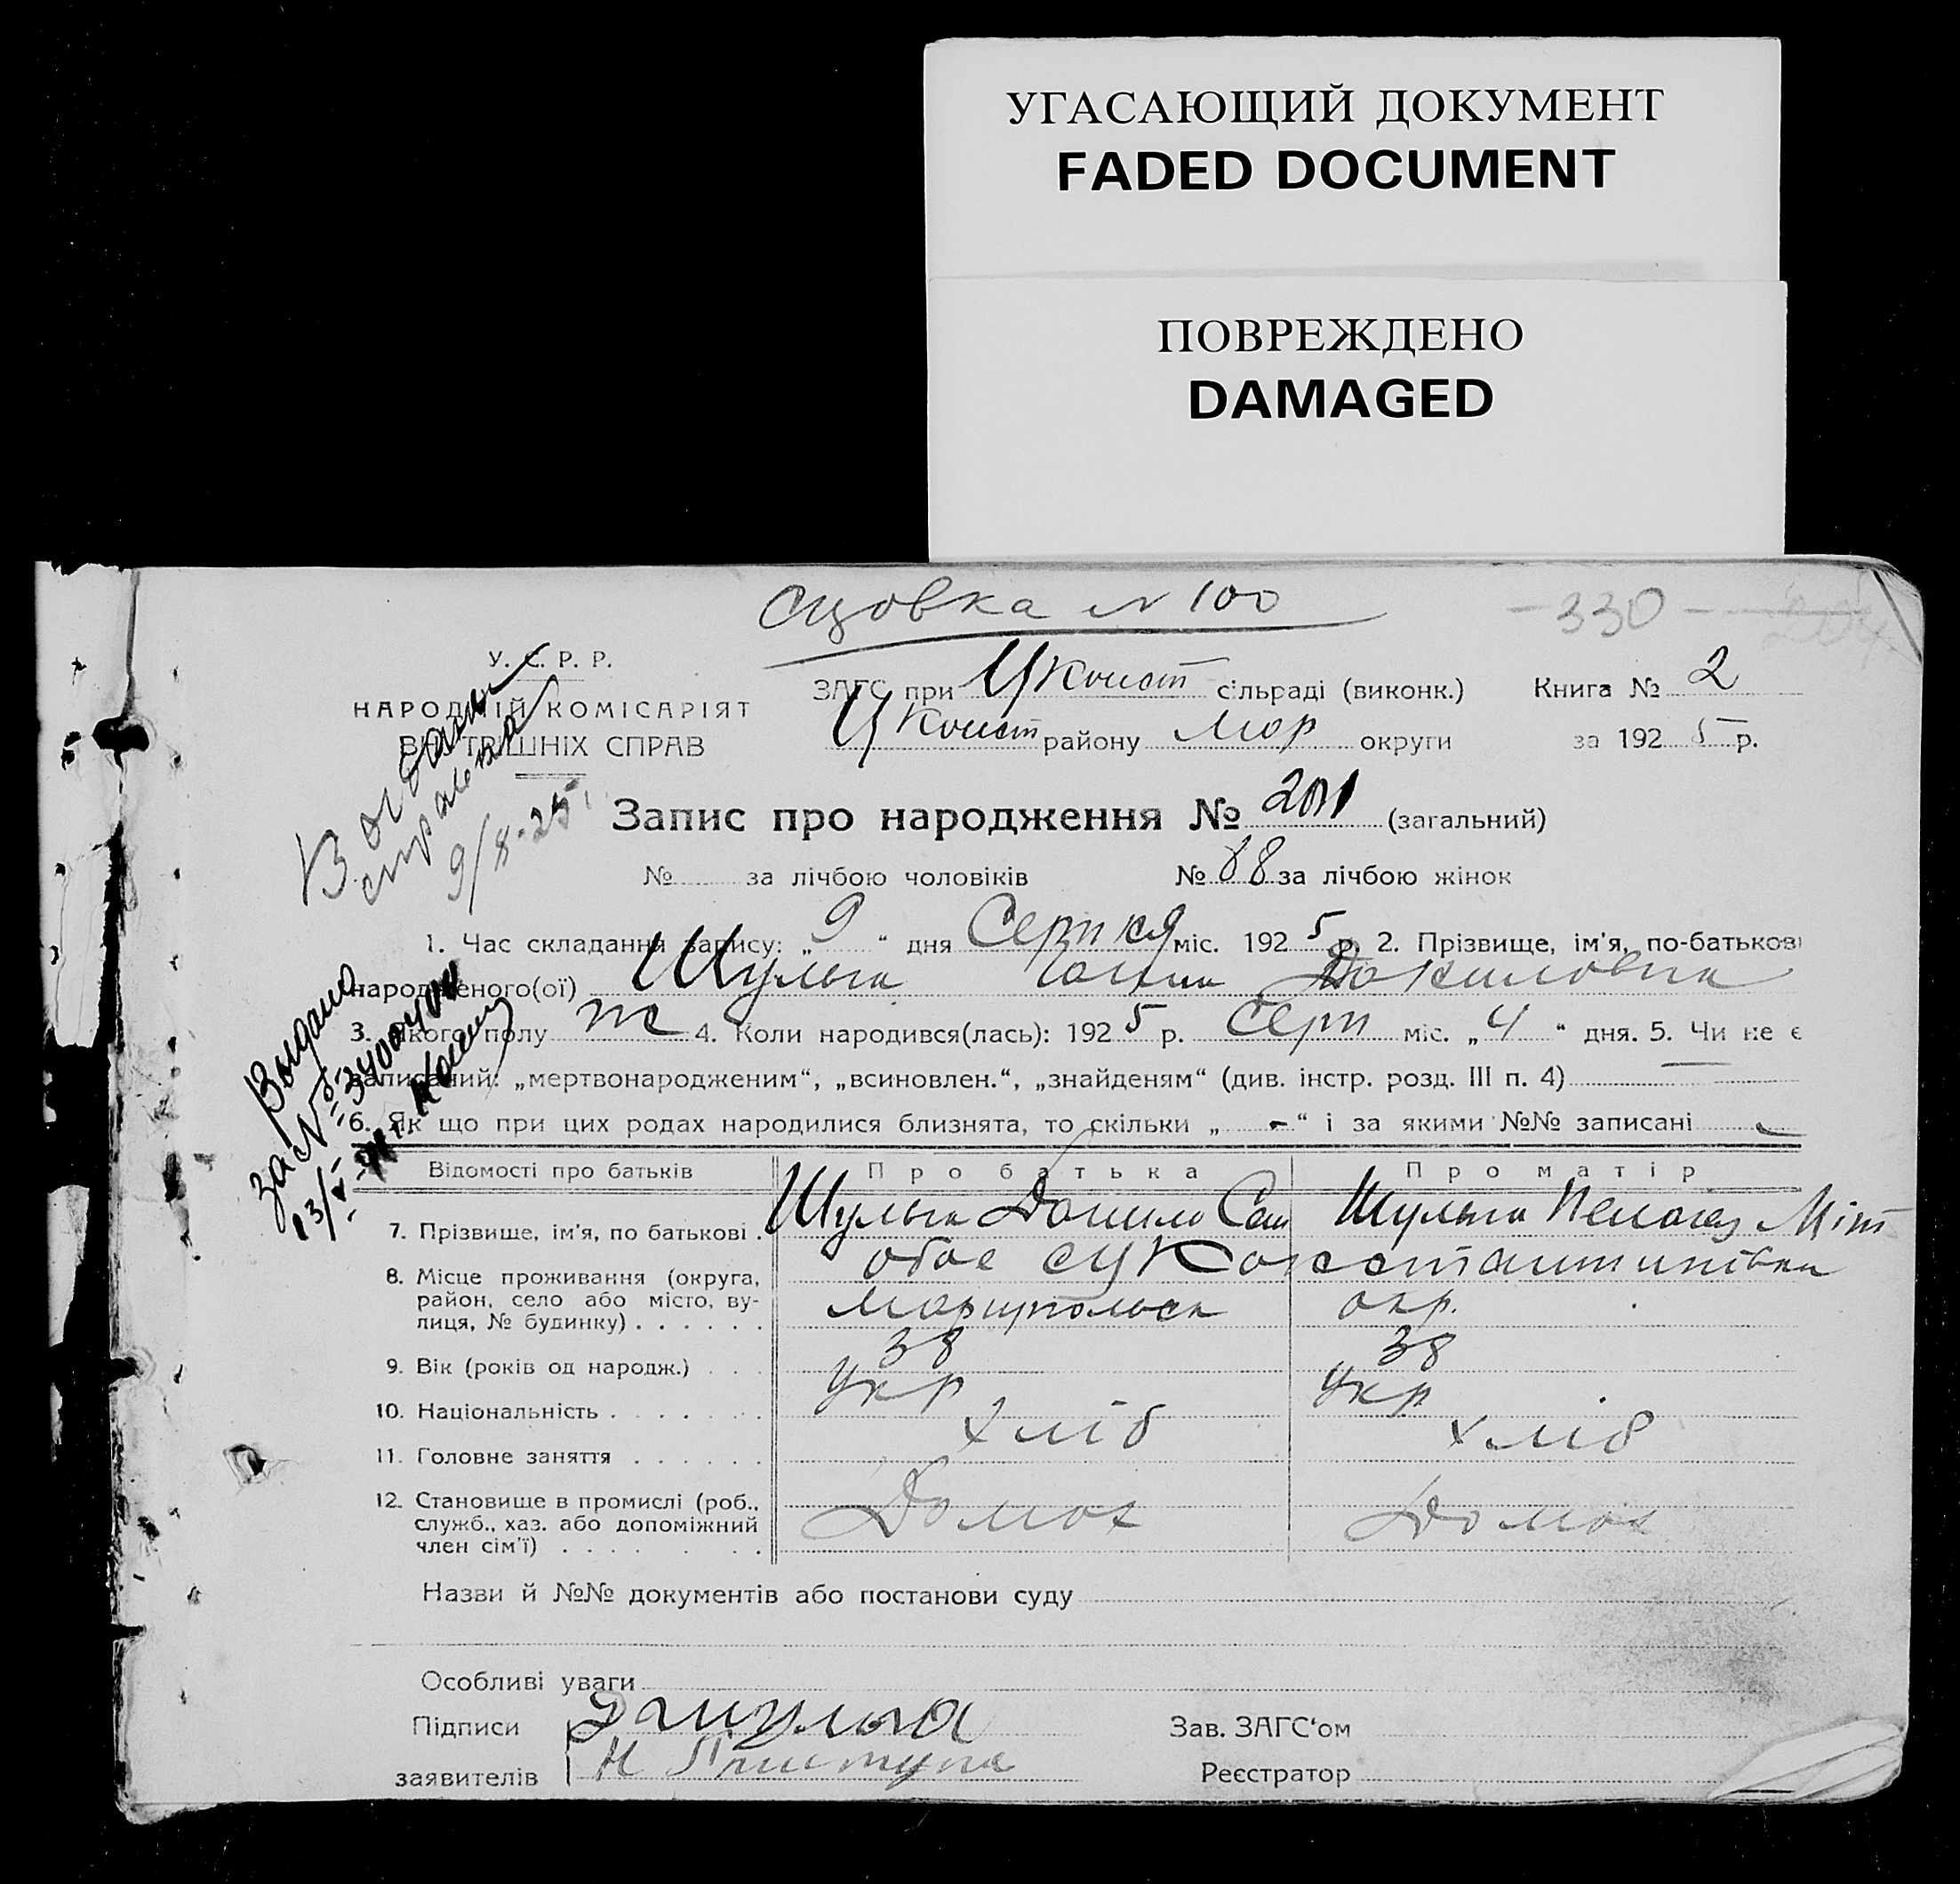 УГАСАЮЩИЙ ДОКУМЕНТ
FADED DOCUMENT
ПОВРЕЖДЕНО
DAMAGED
N 100
- 330 -
У. С. Р. Р.
НАРОДНІЙ КОМІСАРІЯТ
ВНУТРІШНІХ СПРАВ
ЗАГС при ЦКонст сільраді (виконк.) Книга № 2
ЦКонст району Мар округи за 1925 р.
справка
9/8-25
Запис про народження № 201 (загальний)
№ за лічбою чоловіків № 88 за лічбою жінок
1. Час складання запису: „ 9 “ дня Серпня міс. 1925 р. 2. Прізвище, ім'я, по-батькові
народженого(ої) Шульга Даниловна
3. Якого полу ж 4. Коли народився(лась): 1925 р. Серп міс. „ 4 “ дня. 5. Чи не є
записаний: „мертвонародженим“, „всиновлен.“, „знайденям“ (див. інстр. розд. III п. 4)
6. Як що при цих родах народилися близнята, то скільки „ - “ і за якими №№ записані -
Выдано
за №
Відомості про батьків Про батька Про матір
7. Прізвище, ім'я, по батькові . Шульга Данило Сам Шульга Пелагея Міт
8. Місце проживання (округа, обое Константинівка
район, село або місто, ву- Маріупольск окр.
лиця, № будинку) . . . . . .
9. Вік (років од народж.) . . . 38 38
10. Національність . . . . . . . Укр Укр
11. Головне заняття . . . . . . хліб хліб
12. Становище в промислі (роб., Домох Домох
служб., хаз. або допоміжний
член сім'ї) . . . . . . .
Назви й №№ документів або постанови суду
Особливі уваги
Підписи Дшульга Зав. ЗАГС‘ом
заявителів Н Приступа Реєстратор